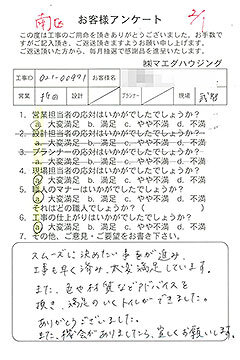 南区 お客様アンケート 2/1
この度は工事のご用命を頂きありがとうございました。お手数で
すがご記入頂き、ご返送頂きますようお願い申し上げます。
ご返送頂いた方から、毎月抽選で感謝品を進呈いたします。
㈱マエダハウジング
工事ID 021-00991 お客様名
営業 設計 プランナー 現場 武智
1. 営業担当者の応対はいかがでしたでしょうか?
a. 大変満足 b. 満足 c. やや不満 d. 不満
2. 設計担当者の応対はいかがでしたでしょうか?
a. 大変満足 b. 満足 c. やや不満 d. 不満
3. プランナーの応対はいかがでしたでしょうか?
a. 大変満足 b. 満足 c. やや不満 d. 不満
4. 現場担当者の応対はいかがでしたでしょうか?
a. 大変満足 b. 満足 c. やや不満 d. 不満
5. 職人のマナーはいかがでしたでしょうか?
a. 大変満足 b. 満足 c. やや不満 d. 不満
それはどの職人でしょうか? ( )
6. 工事の仕上がりはいかがでしたでしょうか?
a. 大変満足 b. 満足 c. やや不満 d. 不満
7. その他、ご意見・ご要望をお書き下さい。
スムーズに決めたい事が進み、
工事も早く済み、大変満足しています。
また、色や材質などアドバイスを
頂き、満足のいくトイレができました。
ありがとうございました。
また、機会がありましたら、宜しくお願いします。